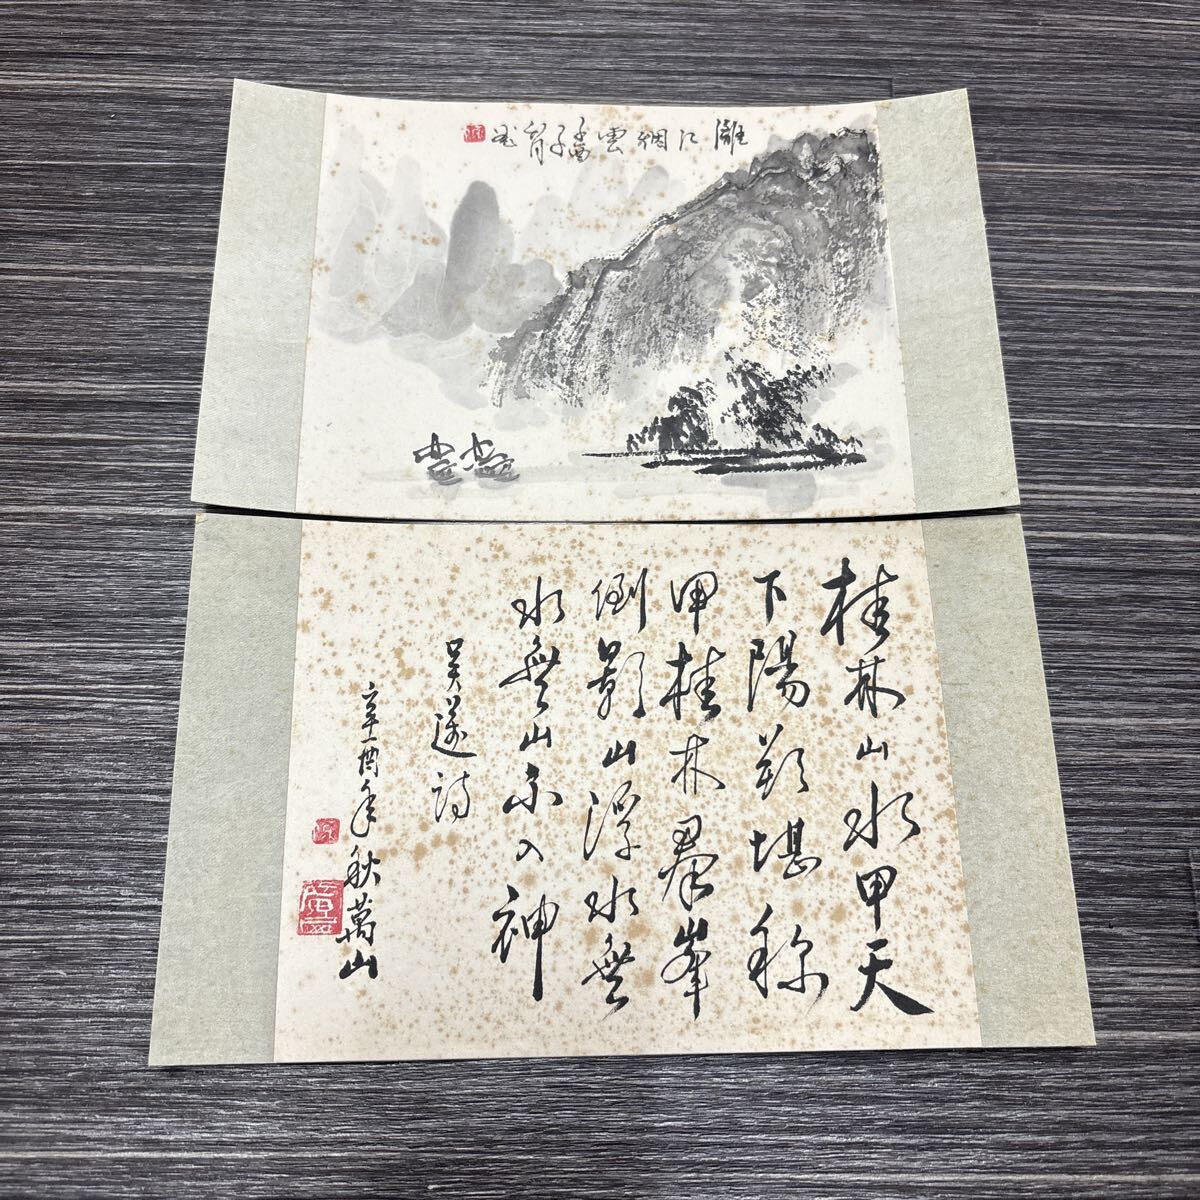 灕江烟雲
桂林山水甲天
下陽朔堪称
甲桂林群峯
倒影山浮水無
水無山不入神
吴邁詩
辛酉年秋萬山